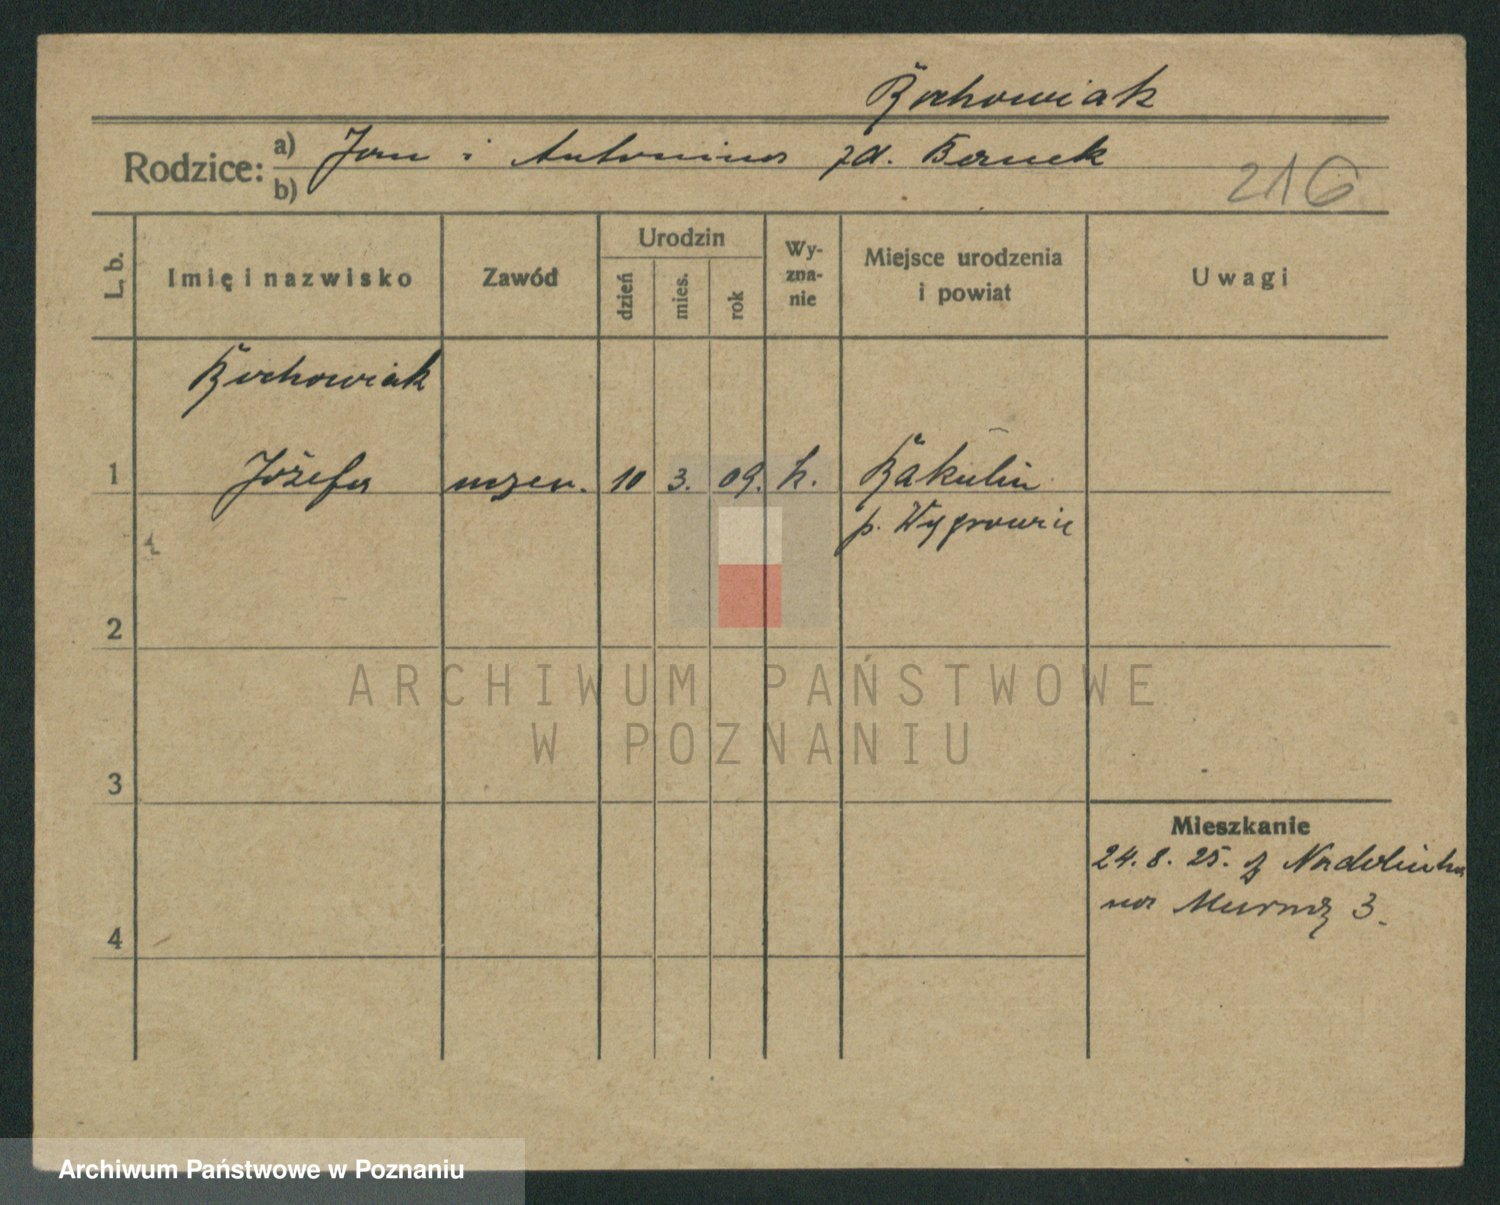 Bochowiak
Rodzice: a) Jan i Antonina zd. Bernek
b)
216
L. b. Imię i nazwisko Zawód Urodzin dzień mies. rok Wy-zna-nie Miejsce urodzenia i powiat Uwagi
Bochowiak
1 Józefa 10 3. 09. k. Bąkulin
p. Wągrowiec
2
ARCHIWUM PAŃSTWOWE
W POZNANIU
3
Mieszkanie
24. 8. 25. z
na Murna 3.
4
Archiwum Państwowe w Poznaniu